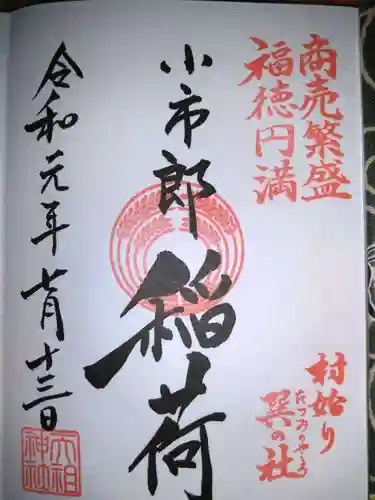 商売繁盛
福徳円満
村始り
巽の社
たつみのやしろ
小市郎稲荷
令和元年七月十三日
六祖
神社